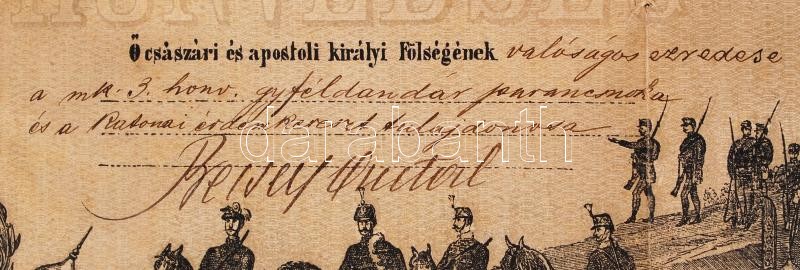 HONVÉDSÉG
Ő császári és apostoli királyi Fölségének valóságos ezredese
a mk. 3. honv. gy. féldandár parancsnoka
és a Katonai érdemkereszt tulajdonosa
darabanth